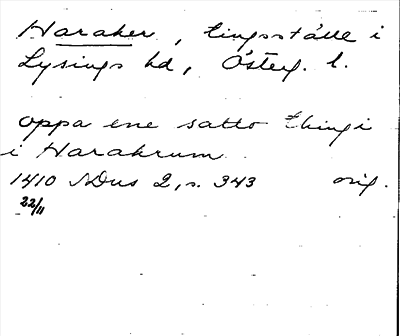 Haraker, tingsställe i
Lysings hd, Österg. l.
oppa ene satto thingi
i Harakrum
1410 SDns 2, s. 343 orig.
22/11